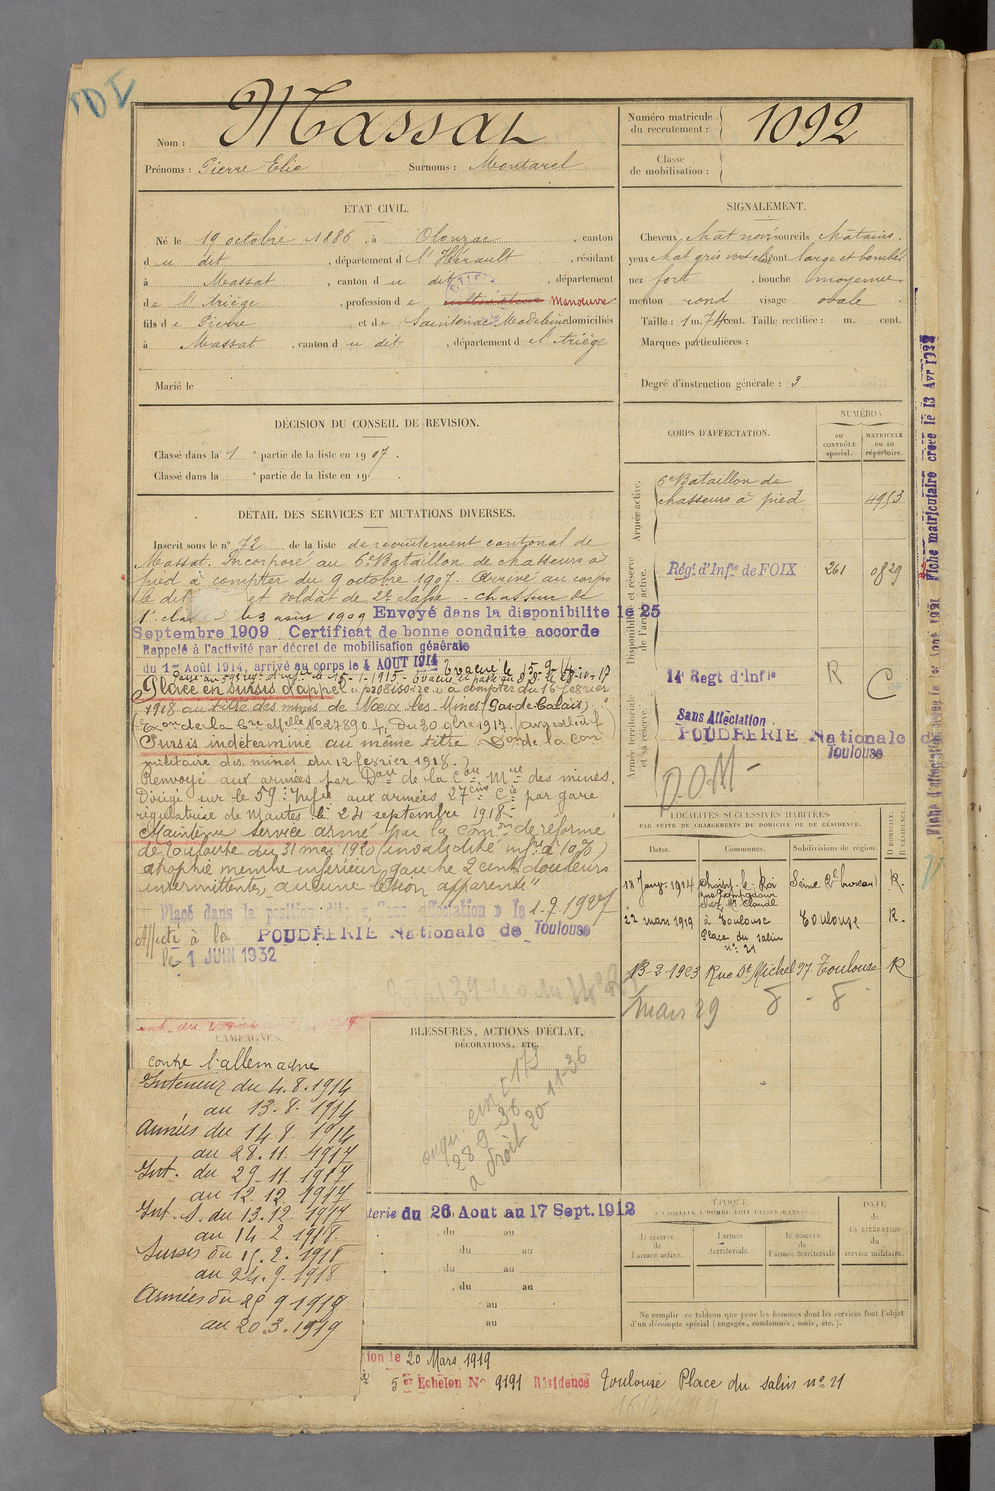 Nom : Massat
Prénoms : Pierre Elie Surnoms : Montarel
Numéro matricule du recrutement : 1092
Classe de mobilisation :
ETAT CIVIL.
Né le 19 octobre 1886, à Olonzac, canton
du dit, département de l'Hérault, résidant
à Massat, canton du dit, département
de l'Ariège, profession de cultivateur Manœuvre
fils de Pierre et de Sentenac Madeleine domiciliés
à Massat, canton du dit, département de l'Ariège
Marié le
SIGNALEMENT.
Cheveux chât noir sourcils châtains.
yeux chat gris vert clair front large et bombé
nez fort, bouche moyenne
menton rond visage ovale
Taille : 1m.74 cent. Taille rectifiée : m. cent.
Marques particulières :
Degré d'instruction générale : 3
DÉCISION DU CONSEIL DE REVISION.
Classé dans la 1e partie de la liste en 1907.
Classé dans la e partie de la liste en 19 .
DÉTAIL DES SERVICES ET MUTATIONS DIVERSES.
Inscrit sous le n° 72 de la liste de recrutement cantonal de
Massat. Incorporé au 6e Bataillon de chasseurs à
pied à compter du 9 octobre 1907. Arrivé au corps
le dit et soldat de 2e classe. Chasseur de
1e classe le 3 août 1909 Envoyé dans la disponibilite le 25
Septembre 1909 Certificat de bonne conduite accorde
Rappelé à l'activité par décret de mobilisation générale
du 1er Août 1914, arrivé au corps le 4 AOUT 1914
Placé en sursis d'appel "provisoire" à compter du 16 février
1918 au titre des mines de Nœux les Mines (Pas-de-Calais)
Sursis indéterminé au même titre Don de la Con
militaire des mines du 12 février 1918.
Renvoyé aux armées par Don de la Con Mre des mines.
Dirigé sur le 59e Infie aux armées 27eme Cie par gare
régulatrice de Mantes le 24 septembre 1918
Maintenu service armé par la Comon de réforme
de Toulouse du 31 mai 1920 (invalidité infre à 10%)
atrophie membre inférieur gauche 2 cent. douleurs
intermittentes, aucune lésion apparente"
Placé dans la position dite « Sans affectation » le 1-7-1927
Affecté à la POUDRERIE Nationale de Toulouse
le 1 JUIN 1932
CORPS D'AFFECTATION.
NUMÉROS
au contrôle spécial.
MATRICULE ou au répertoire.
Armée active.
6e Bataillon de
chasseurs à pied 4953
Disponibilité et réserve de l'armée active.
Régt d'Infie de FOIX 261 0829
14e Regt d'Infie R C
Armée territoriale et sa réserve.
Sans Affectation
POUDRERIE Nationale de
Toulouse
D.O.M
LOCALITÉS SUCCESSIVES HABITÉES
PAR SUITE DE CHANGEMENTS DE DOMICILE OU DE RÉSIDENCE.
Dates. Communes. Subdivisions de région. D DOMICILE. R RÉSIDENCE
13 Janv. 1914 Choisy-le-Roi Seine (2e bureau) R.
22 mars 1919 à Toulouse Toulouse R.
Place du Salin
n° 21
13-2-1923 Rue St Michel 97 Toulouse R
Mars 29
CAMPAGNES.
contre l'allemagne
Intérieur du 4.8.1914
au 13.8.1914
Armées du 14 8 1914
au 28.11.1917
Int. du 29-11-1917
au 12.12.1917
Int. S. du 13.12.1917
au 14 2 1918.
Sursis du 15.2.1918
au 24.9.1918
Armées du 25 9 1918
au 20.3.1919
BLESSURES, ACTIONS D'ÉCLAT,
DÉCORATIONS, ETC.
28 9 36
à droit 20-11-36
terie du 26 Aout au 17 Sept. 1912
, du au
, du au
, du au
, du au
au
au
ÉPOQUE
A LAQUELLE L'HOMME DOIT PASSER DANS
la réserve de l'armée active.
l'armée territoriale.
la réserve de l'armée territoriale
DATE de LA LIBÉRATION du service militaire.
Ne remplir ce tableau que pour les hommes dont les services font l'objet
d'un décompte spécial (engagés, condamnés, omis, etc.).
ion le 20 Mars 1919
5 er Echelon N° 9191 Résidence Toulouse Place du Salin n° 21
Fiche matriculaire créée le 13 Avr 1922